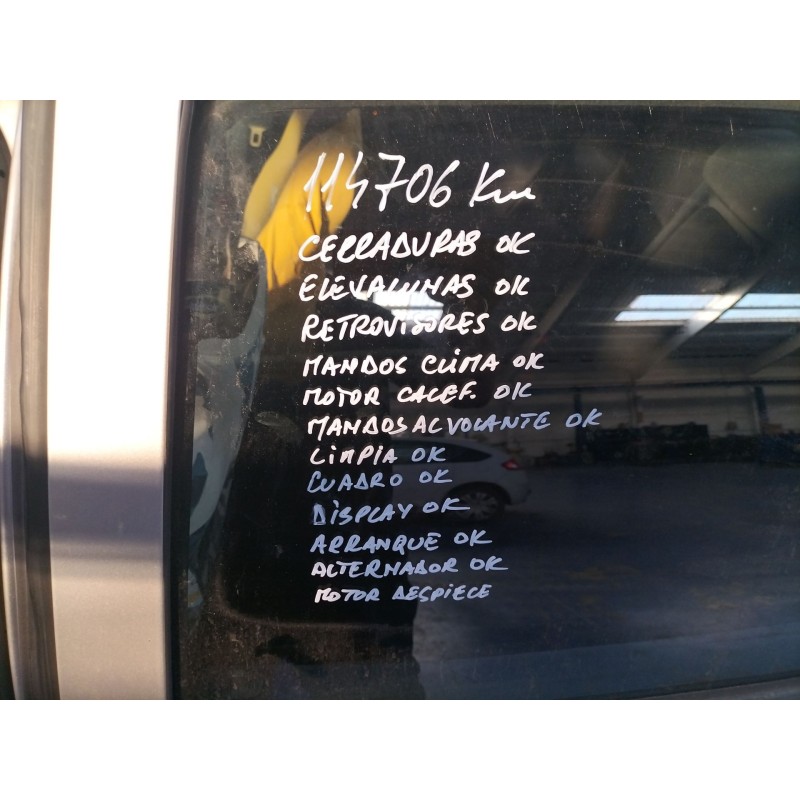 114706 Km
CERRADURAS OK
ELEVALUNAS OK
RETROVISORES OK
MANDOS CLIMA OK
MOTOR CALEF. OK
MANDOS AL VOLANTE OK
LIMPIA OK
CUADRO OK
DISPLAY OK
ARRANQUE OK
ALTERNADOR OK
MOTOR DESPIECE